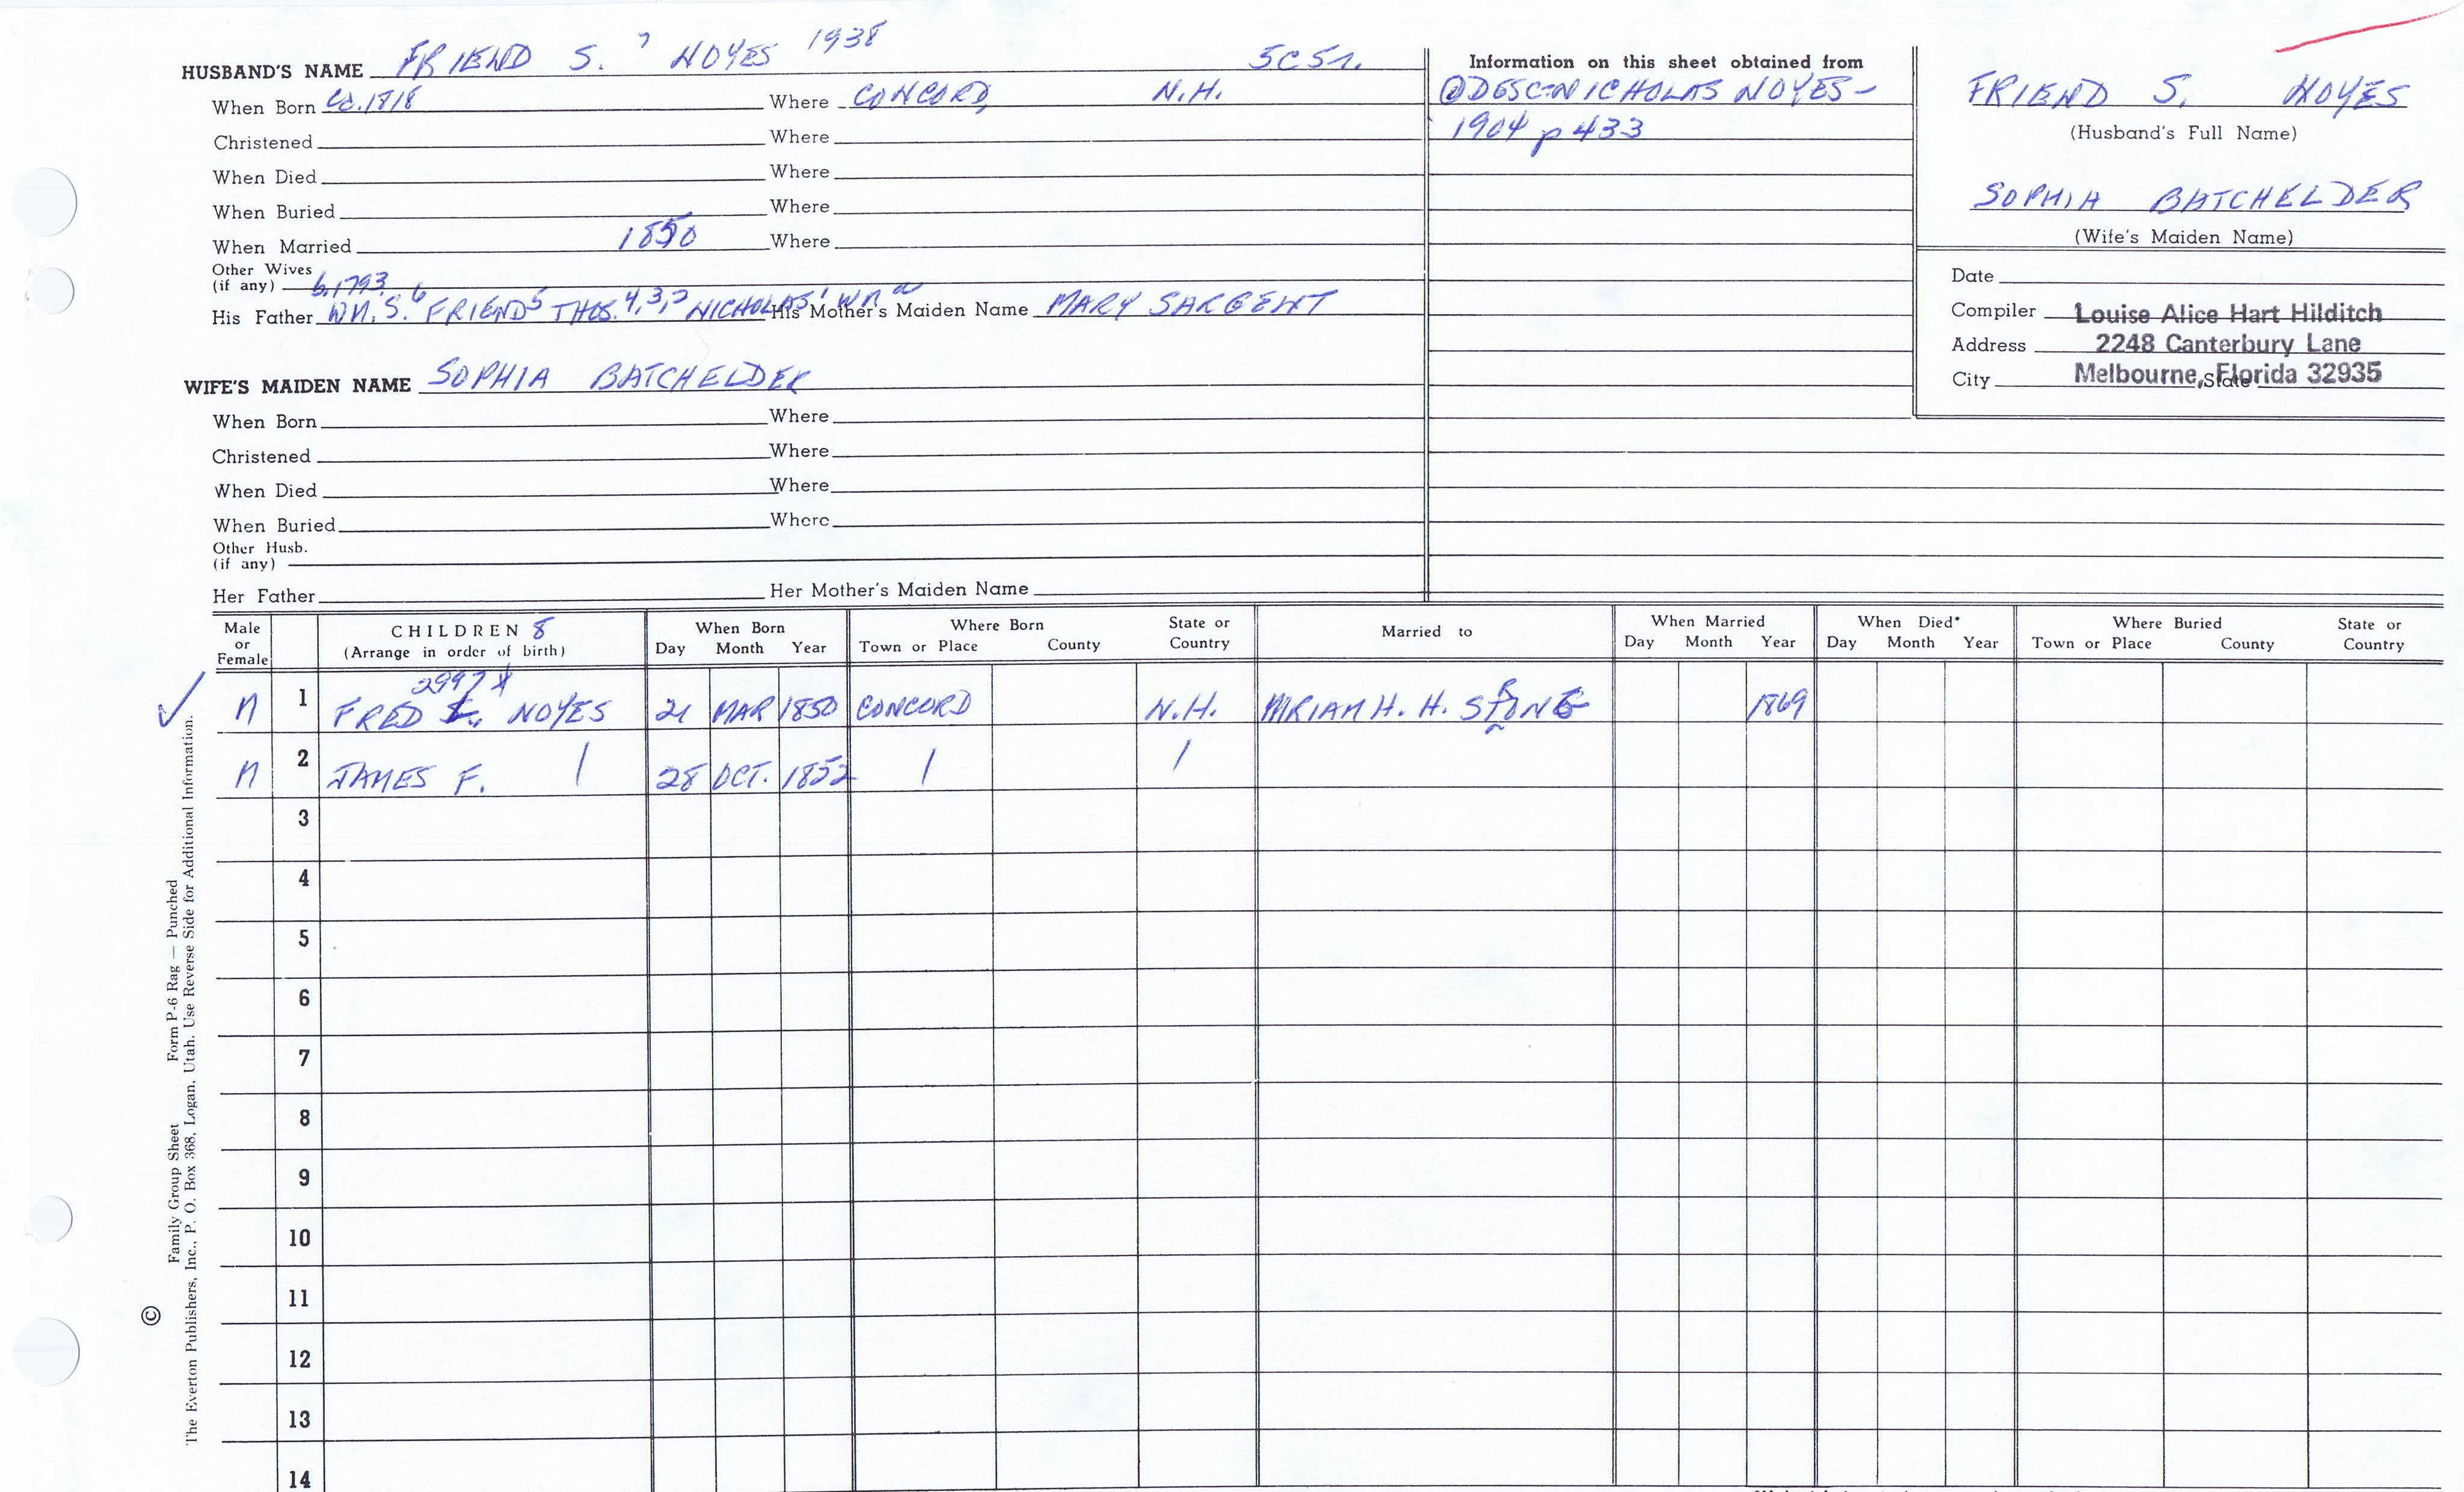 HUSBAND'S NAME FRIEND S. 7 NOYES 1938 5C5r.
When Born Ca. 1818 Where CONCORD, N.H.
Christened Where
When Died Where
When Buried Where
When Married 1850 Where
Other Wives
(if any) b. 1793
His Father WM. S. 6 FRIEND 5 THOS. 4,3,2 NICHOLAS 1 WM a His Mother's Maiden Name MARY SARGENT
WIFE'S MAIDEN NAME SOPHIA BATCHELDER
When Born Where
Christened Where
When Died Where
When Buried Where
Other Husb.
(if any)
Her Father Her Mother's Maiden Name
Information on this sheet obtained from
DESC NICHOLAS NOYES-
1904 p 433
FRIEND S. NOYES
(Husband's Full Name)
SOPHIA BATCHELDER
(Wife's Maiden Name)
Date
Compiler Louise Alice Hart Hilditch
Address 2248 Canterbury Lane
City Melbourne, Florida 32935 State
Male or Female CHILDREN 8 (Arrange in order of birth) When Born Day Month Year Where Born Town or Place County State or Country Married to When Married Day Month Year When Died* Day Month Year Where Buried Town or Place County State or Country
2997 x
✓ M 1 FRED NOYES 21 MAR 1850 CONCORD N.H. MIRIAM H. H. 1869
M 2 JAMES F. | 28 OCT. 1852 | |
3
4
5
6
7
8
9
10
11
12
13
14
© Family Group Sheet Form P-6 Rag — Punched
The Everton Publishers, Inc., P. O. Box 368, Logan, Utah. Use Reverse Side for Additional Information.